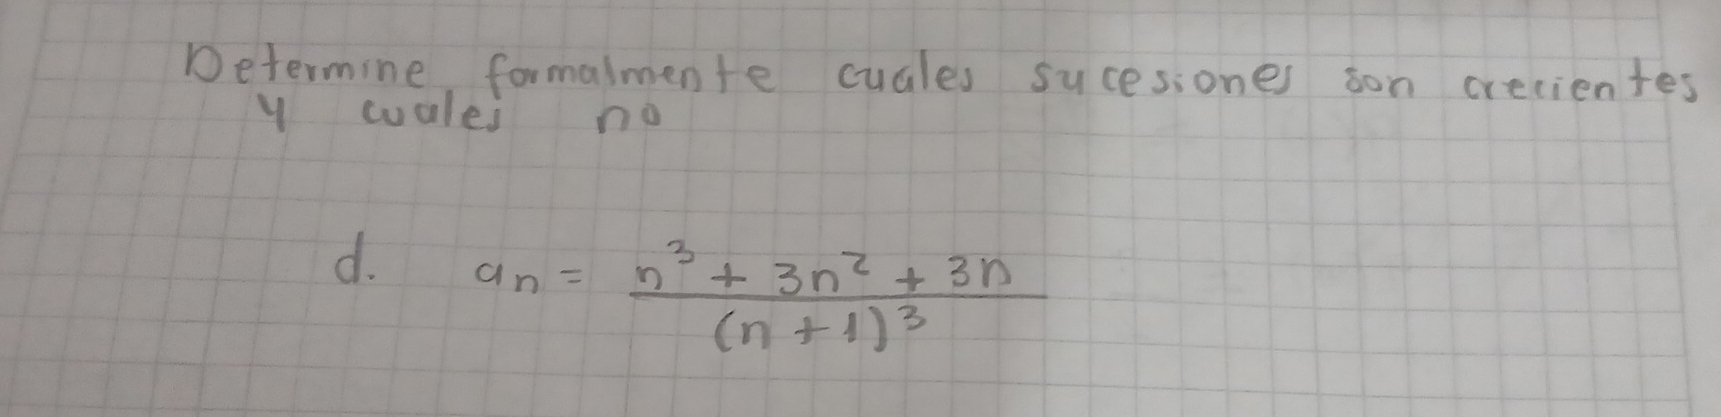 Determine formalmente cuales sucesiones son crecientes
y cuales no
d. an = n³ + 3n² + 3n
(n + 1)³